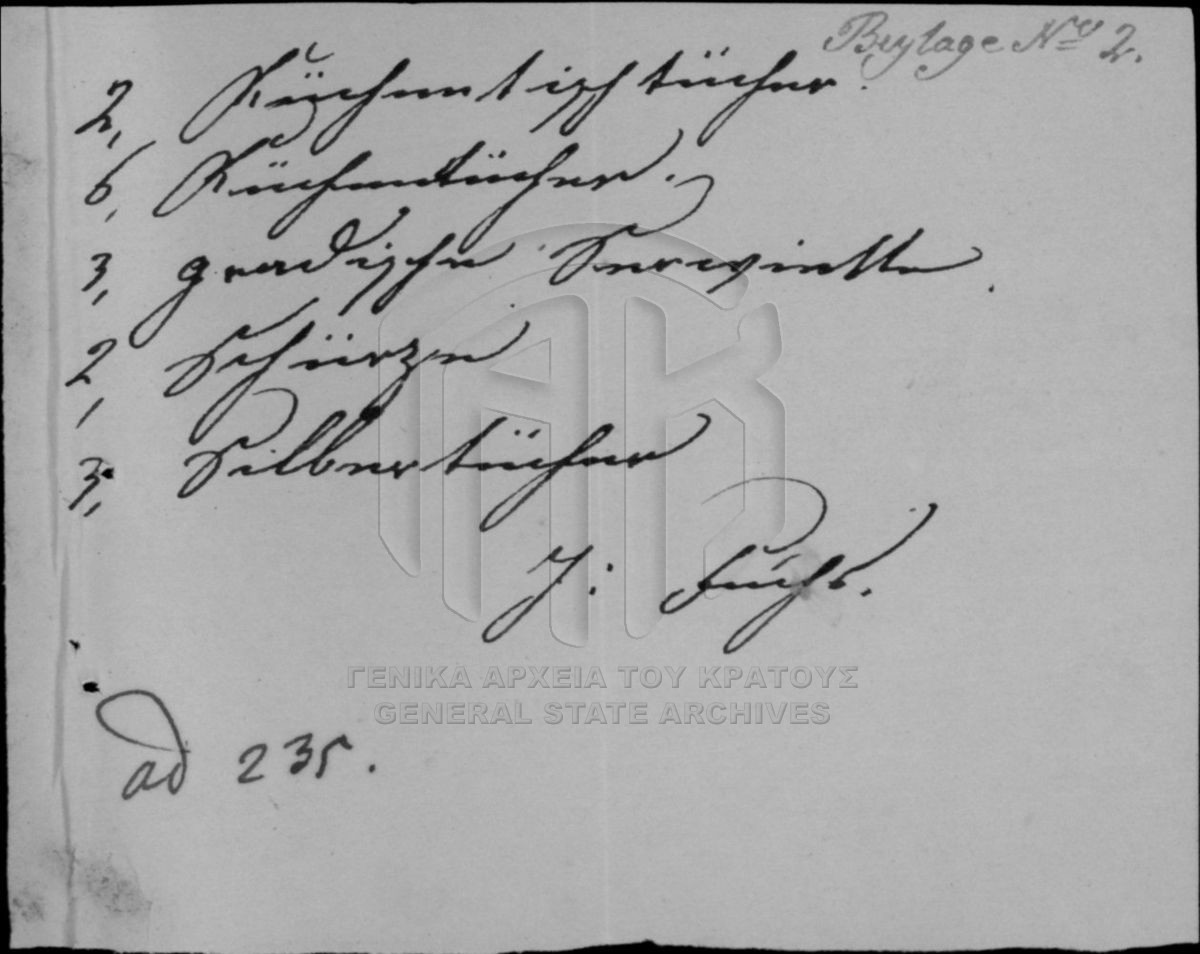 Beylage No 2.
2, Küchentischtücher.
6, Küchentücher.
3, gradische Serviette.
2, Schürze
3, Silbertücher
J: Fuchs.
ΓΕΝΙΚΑ ΑΡΧΕΙΑ ΤΟΥ ΚΡΑΤΟΥΣ
GENERAL STATE ARCHIVES
ad 235.